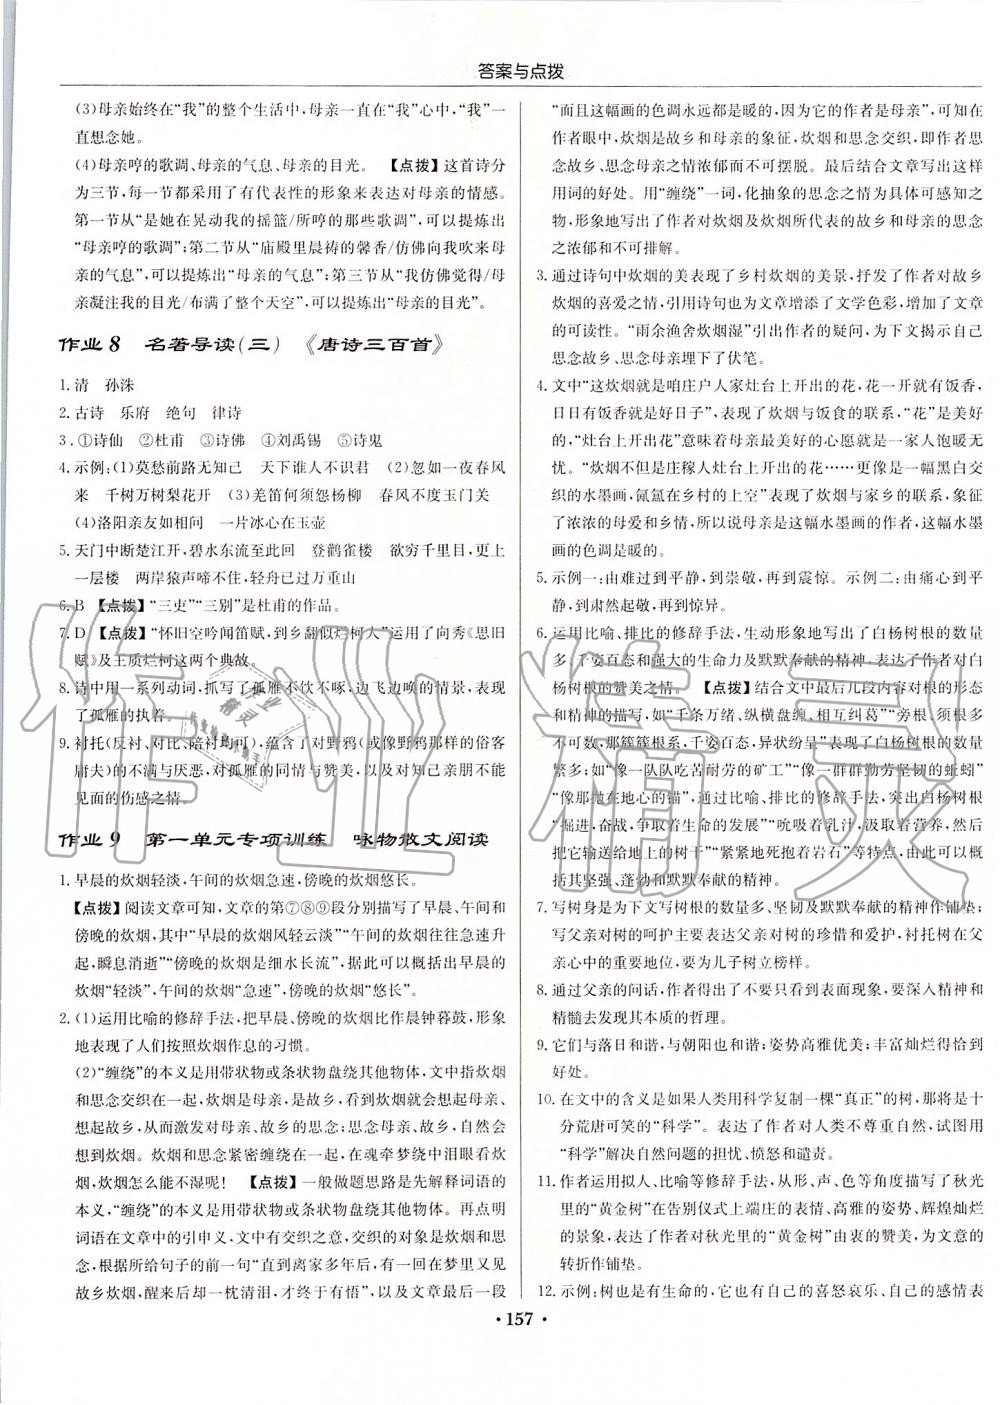 答案与点拨
(3)母亲始终在“我”的整个生活中,母亲一直在“我”心中,“我”一
直想念她。
(4)母亲哼的歌调、母亲的气息、母亲的目光。 【点拨】这首诗分
为三节,每一节都采用了有代表性的形象来表达对母亲的情感。
第一节从“是她在晃动我的摇篮/所哼的那些歌调”,可以提炼出
“母亲哼的歌调”;第二节从“庙殿里晨祷的馨香/仿佛向我吹来母
亲的气息”,可以提炼出“母亲的气息”;第三节从“我仿佛觉得/母
亲凝注我的目光/布满了整个天空”,可以提炼出“母亲的目光”。
作业8 名著导读(三) 《唐诗三百首》
1.清 孙洙
2.古诗 乐府 绝句 律诗
3.①诗仙 ②杜甫 ③诗佛 ④刘禹锡 ⑤诗鬼
4.示例:(1)莫愁前路无知己 天下谁人不识君 (2)忽如一夜春风
来 千树万树梨花开 (3)羌笛何须怨杨柳 春风不度玉门关
(4)洛阳亲友如相问 一片冰心在玉壶
5.天门中断楚江开,碧水东流至此回 登鹳雀楼 欲穷千里目,更上
一层楼 两岸猿声啼不住,轻舟已过万重山
6.B 【点拨】“三吏”“三别”是杜甫的作品。
7.D 【点拨】“怀旧空吟闻笛赋,到乡翻似烂柯人”运用了向秀《思旧
赋》及王质烂柯这两个典故。
8.诗中用一系列动词,抓写了孤雁不饮不啄,边飞边唤的情景,表现
了孤雁的执着。
9.衬托(反衬、对比、陪衬均可),蕴含了对野鸦(或像野鸦那样的俗客
庸夫)的不满与厌恶,对孤雁的同情与赞美,以及对知己亲朋不能
见面的伤感之情。
作业9 第一单元专项训练 咏物散文阅读
1.早晨的炊烟轻淡,午间的炊烟急速,傍晚的炊烟悠长。
【点拨】阅读文章可知,文章的第⑦⑧⑨段分别描写了早晨、午间和
傍晚的炊烟,其中“早晨的炊烟风轻云淡”“午间的炊烟往往急速升
起,瞬息消逝”“傍晚的炊烟是细水长流”,据此可以概括出早晨的
炊烟“轻淡”,午间的炊烟“急速”,傍晚的炊烟“悠长”。
2.(1)运用比喻的修辞手法,把早晨、傍晚的炊烟比作晨钟暮鼓,形象
地表现了人们按照炊烟作息的习惯。
(2)“缠绕”的本义是用带状物或条状物盘绕其他物体,文中指炊烟
和思念交织在一起,炊烟是母亲,是故乡,看到炊烟就会想起母亲、
故乡,从而激发对母亲、故乡的思念;思念母亲、故乡,自然会想到
炊烟。炊烟和思念紧密缠绕在一起,在魂牵梦绕中泪眼看炊
烟,炊烟怎么能不湿呢! 【点拨】一般做题思路是先解释词语的
本义,“缠绕”的本义是用带状物或条状物盘绕其他物体。再点明
词语在文章中的引申义,文中有交织之意,交织的对象是炊烟和思
念,根据所给句子的前一句“直到离家多年后,有一回在梦里又见
故乡炊烟,醒来后却一枕清泪,才终于有悟”,以及文章最后一段
“而且这幅画的色调永远都是暖的,因为它的作者是母亲”,可知在
作者眼中,炊烟是故乡和母亲的象征,炊烟和思念交织,即作者思
念故乡、思念母亲之情浓郁而不可摆脱。最后结合文章写出这样
用词的好处。用“缠绕”,化抽象的思念之情为具体可感知之
物,形象地写出了作者对炊烟及炊烟所代表的故乡和母亲的思念
之浓郁和不可排解。
3.通过诗句中炊烟的美表现了乡村炊烟的美景,抒发了作者对故乡
炊烟的喜爱之情,引用诗句也为文章增添了文学色彩,增加了文章
的可读性。“雨余渔舍炊烟湿”引出作者的疑问,为下文揭示自己
思念故乡、思念母亲埋下了伏笔。
4.文中“这炊烟就是咱庄户人家灶台上开出的花,花一开就有饭香,
日日有饭香就是好日子”,表现了炊烟与饭食的联系,“花”是美好
的,“灶台上开出的花”意味着母亲最美好的心愿就是一家人饱暖无
忧。“炊烟不但是庄稼人灶台上开出的花……更像是一幅黑白交
织的水墨画,氤氲在乡村的上空”表现了炊烟与家乡的联系,象征
了浓浓的母爱和乡情,所以说母亲是这幅水墨画的作者,这幅水墨
画的色调是暖的。
5.示例一:由难过到平静,到崇敬,再到震惊。示例二:由痛心到平静,
到肃然起敬,再到惊异。
6.运用比喻、排比的修辞手法,生动形象地写出了白杨树根的数量
多、千姿百态和强大的生命力及默默奉献的精神,表达了作者对白
杨树根的赞美之情。 【点拨】结合文中最后几段内容对根的形态
和精神的描写,如“千条万绪、纵横盘缠、相互纠葛”“旁根、须根多
不可数,那簇簇根系,千姿百态,异状纷呈”表现了白杨树根的数量
繁多;如“像一队队吃苦耐劳的矿工”“像一群群勤劳坚韧的蚯蚓”
“像那抛在地心的锚”,通过比喻、排比的修辞手法,突出白杨树根
“掘进,奋战,争取着生命的发展”“吮吸着乳汁,汲取着营养,全部
把它输送给地上的树干”“紧紧地死抱着岩石”等特点,由此可以概
括其坚强、蓬勃和默默奉献的精神。
7.写树身是为下文写树根的数量多、坚韧及默默奉献的精神作铺垫;
写父亲对树的呵护主要表达父亲对树的珍惜和爱护,衬托树在父
亲心中的重要地位,要为儿子树立榜样。
8.通过父亲的问话,作者得出了不要只看到表面现象,要深入精神和
精髓去发现其本质的哲理。
9.它们与落日和谐,与朝阳也和谐;姿势高雅优美;丰富灿烂得恰到
好处。
10.在文中的含义是如果人类用科学复制一棵“真正”的树,那将是十
分荒唐可笑的“科学”。表达了作者对人类不尊重自然,试图用
“科学”解决自然问题的担忧、愤怒和谴责。
11.作者运用拟人、比喻等修辞手法,从形、声、色等角度描写了秋光
里的“黄金树”在告别仪式上端庄的表情、高雅的姿势、辉煌灿烂
的景象,表达了作者对秋光里的“黄金树”由衷的赞美,为文章的
转折作铺垫。
12.示例:树也是有生命的,它也有自己的喜怒哀乐、自己的感情表
·157·
作业精灵